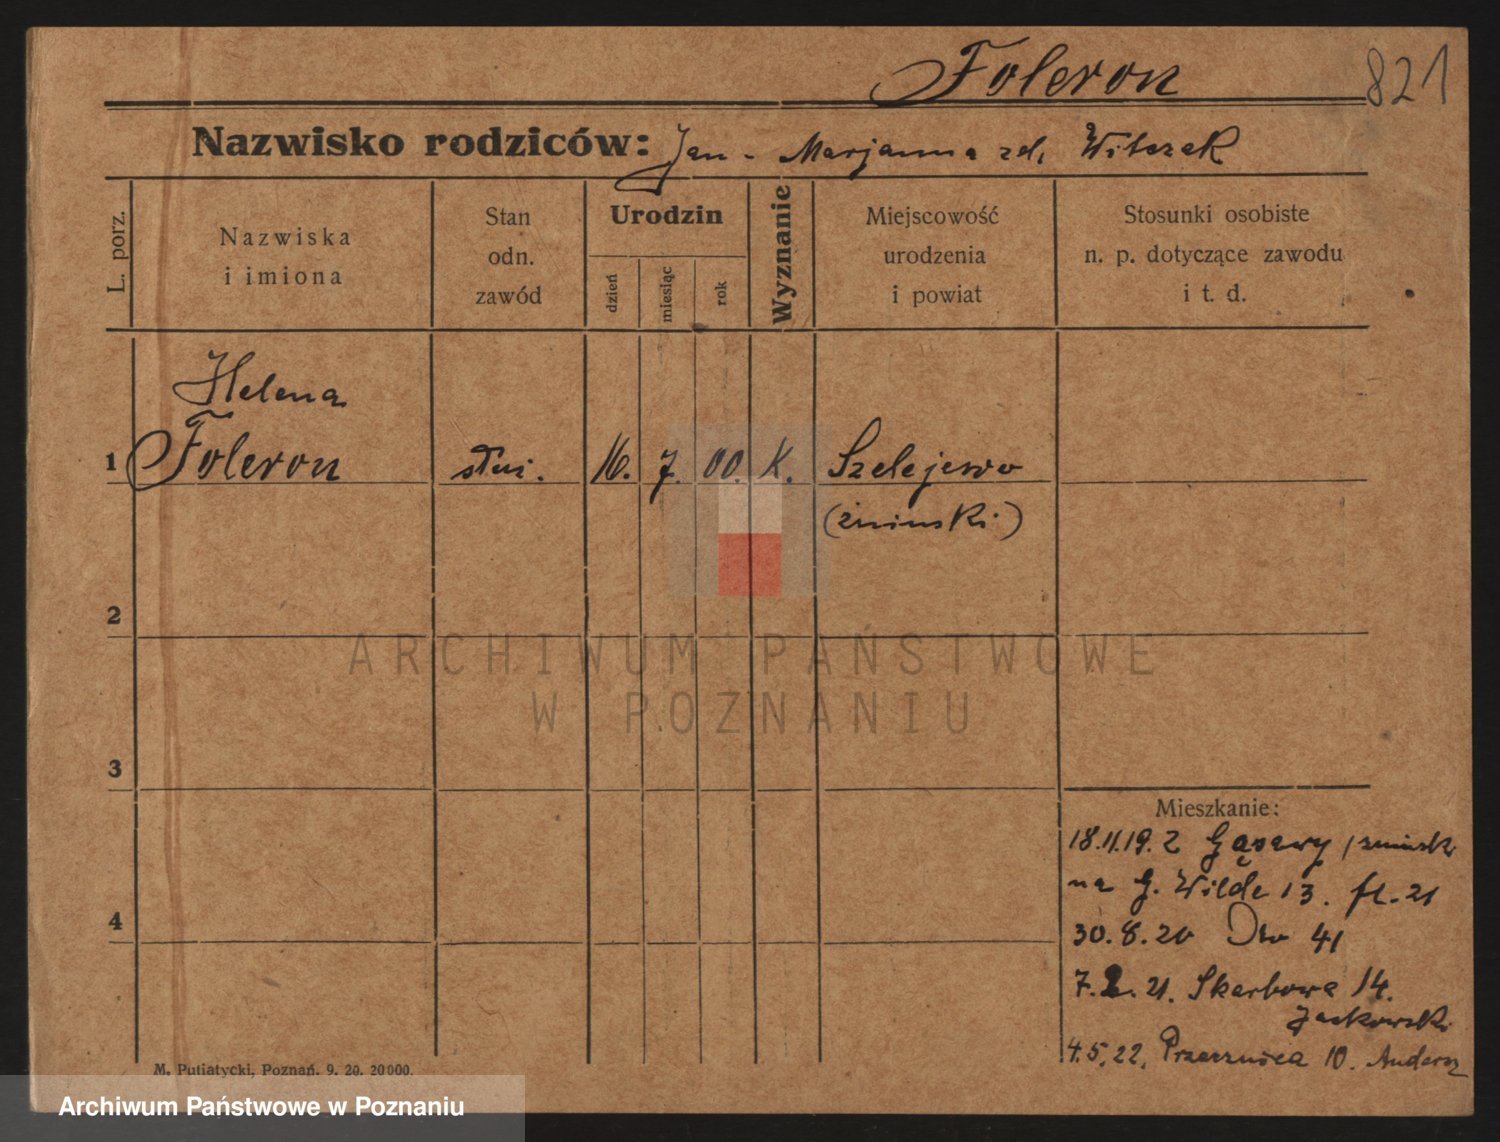 Foleron 821
Nazwisko rodziców: Jan - Marjanna zd. Witczak
L. porz.
Nazwiska
i imiona
Stan
odn.
zawód
Urodzin
dzień
miesiąc
rok
Wyznanie
Miejscowość
urodzenia
i powiat
Stosunki osobiste
n. p. dotyczące zawodu
i t. d.
Helena
1 Foleron służ. 16. 7. 00. K. Szelejewo
(żninski)
2
ARCHIWUM PAŃSTWOWE
W POZNANIU
3
Mieszkanie:
18.11.19. z Gąsawy / żninsk
na G. Wilde 13. fl. 21
4
30.8.20 Dto 41
7.2.21. Skarbowa 14.
Jackowski
4.5.22. Przecznica 10.
M. Putiatycki, Poznań. 9. 20. 20000.
Archiwum Państwowe w Poznaniu